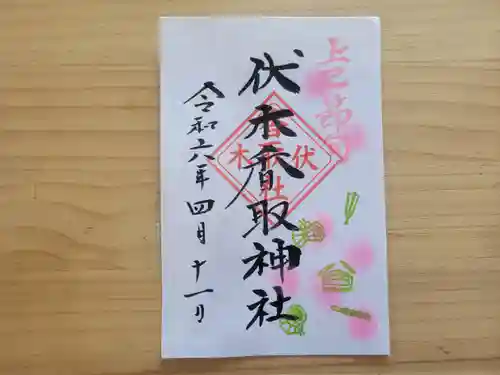 上巳節句
伏木香取神社
伏木
香取社
令和六年 四月 十一日